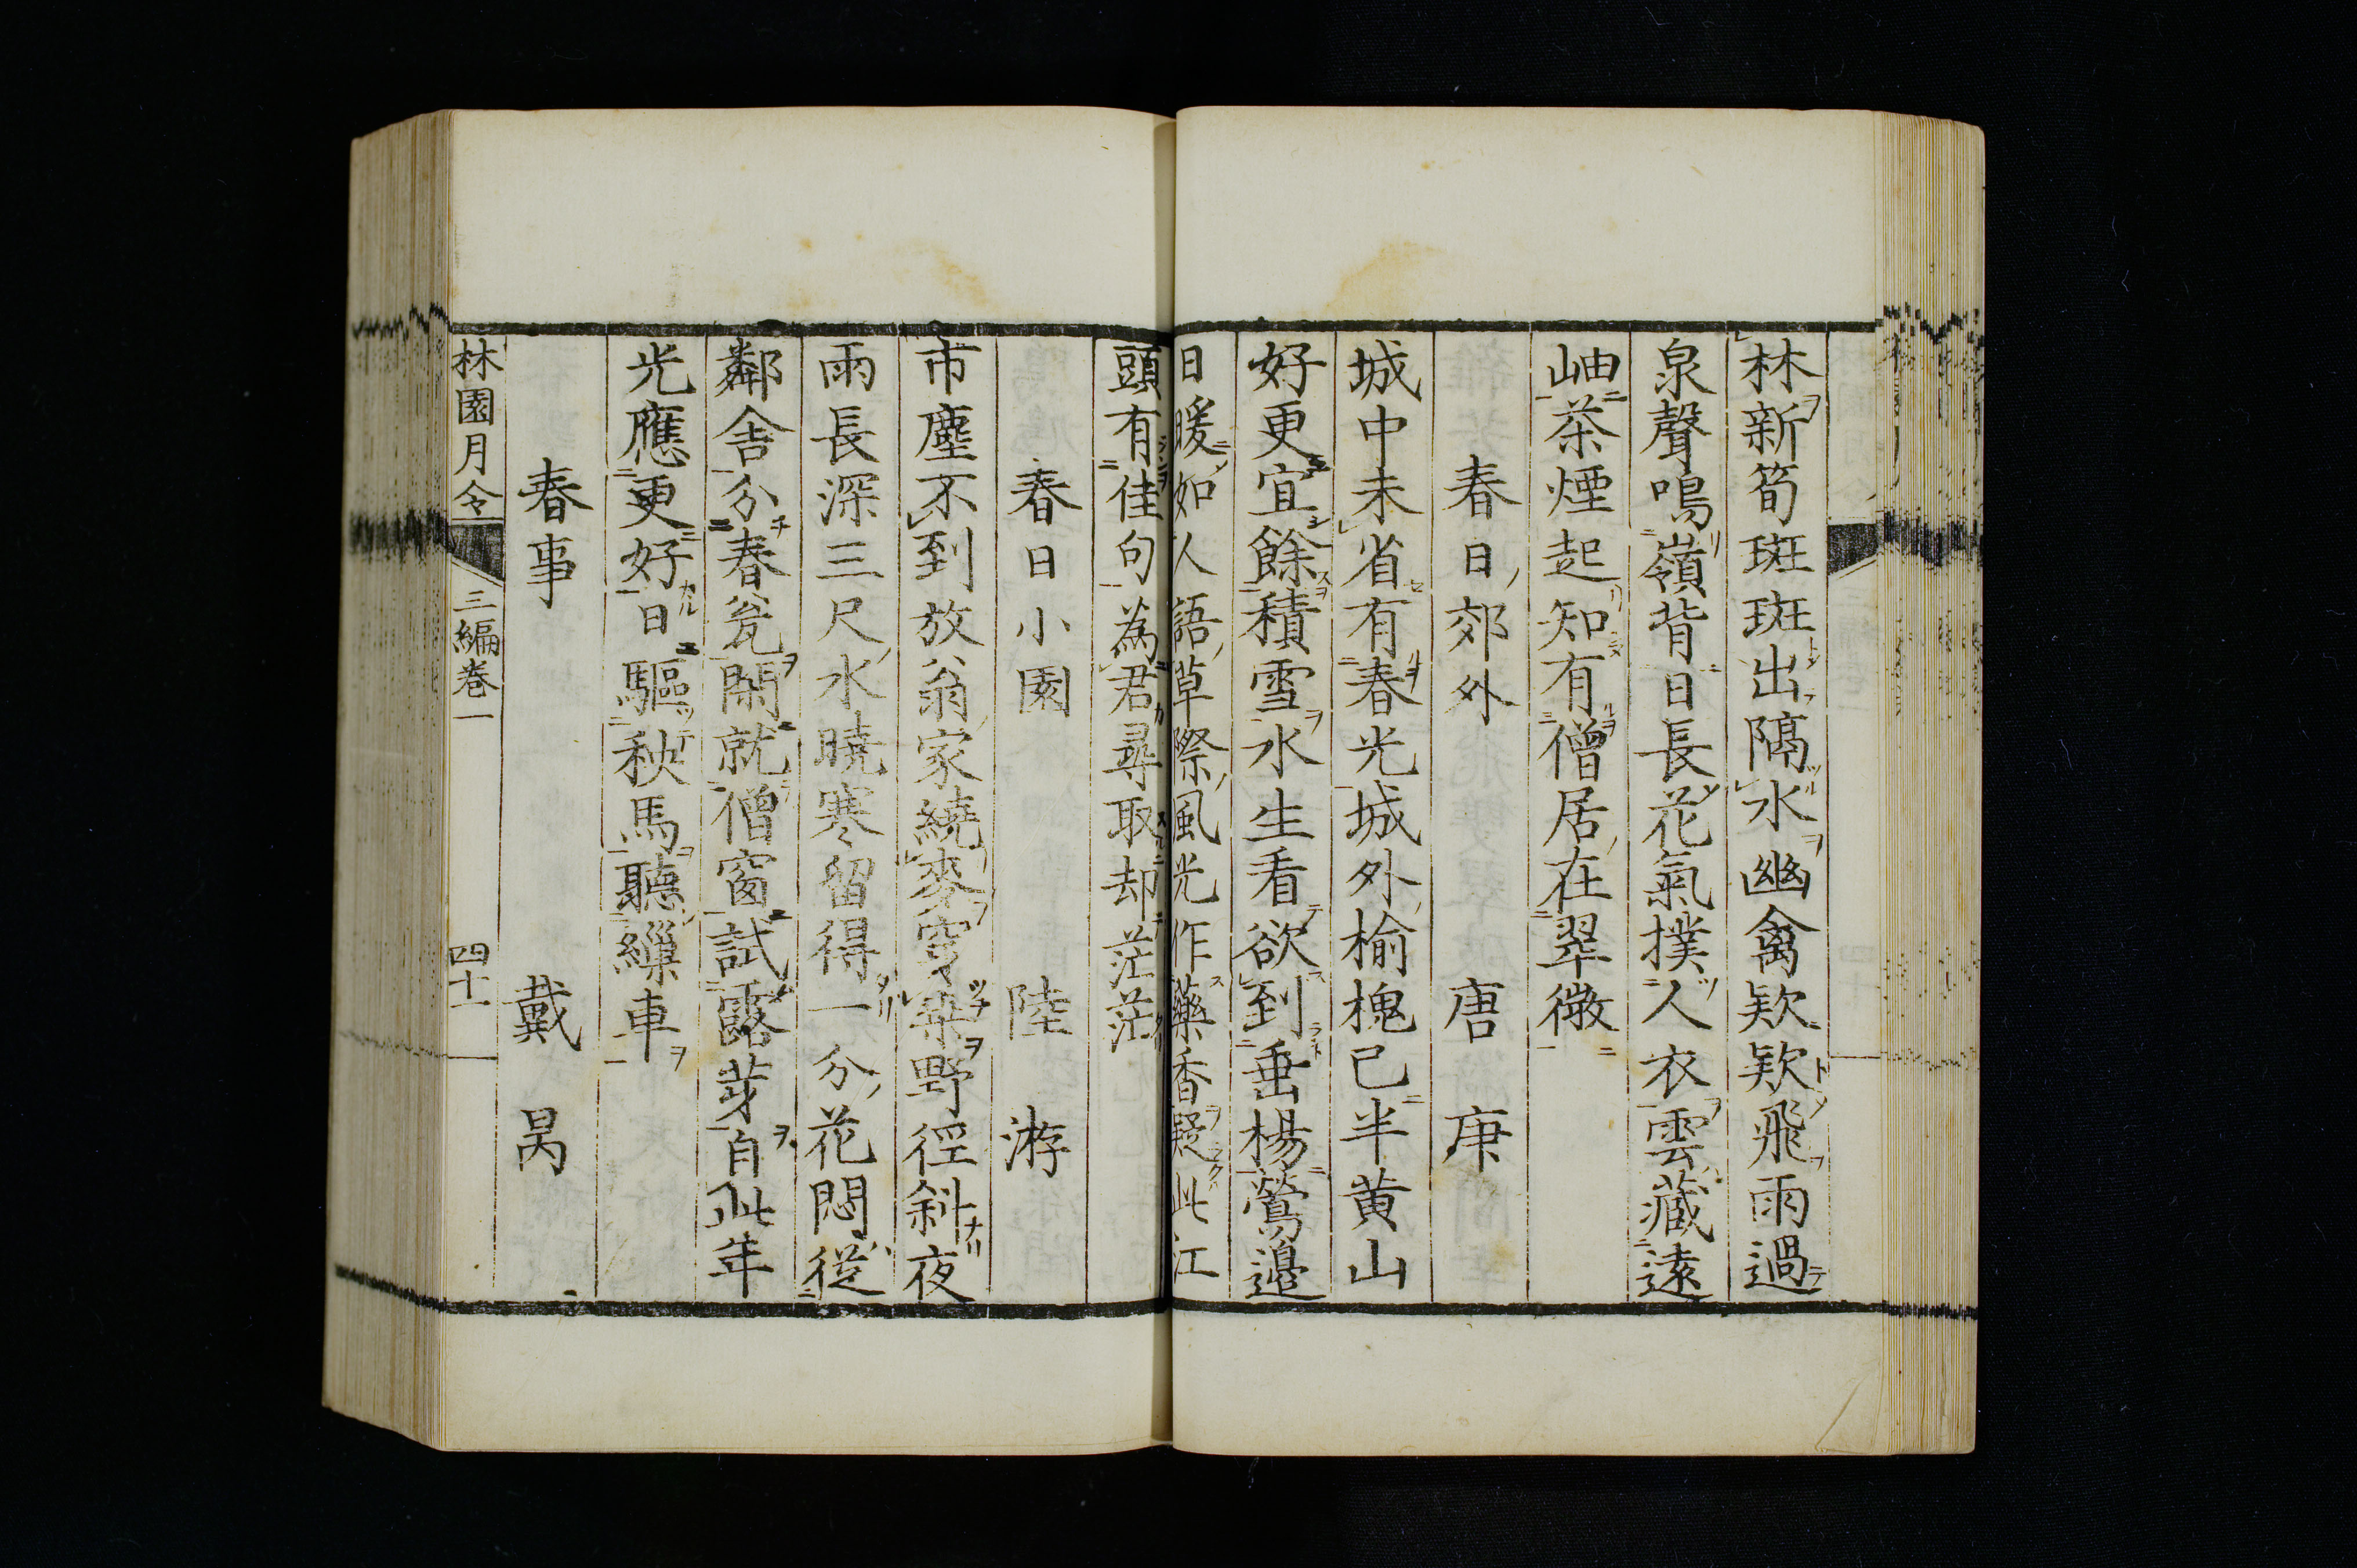 林新筍斑斑出隔水幽禽欵欵飛雨過
泉聲鳴嶺背日長花氣撲人衣雲藏遠
岫茶煙起知有僧居在翠微
春日郊外　唐庚
城中未省有春光城外榆槐已半黄山
好更宜餘積雪水生看欲到垂楊鶯邉
日暖如人語草際風光作藥香疑此江
頭有佳句為君尋取却茫茫
春日小園　陸游
市塵不到放翁家繞麥穿桑野徑斜夜
雨長深三尺水曉寒留得一分花悶從
鄰舍分春瓮閑就僧窗試露芽自此年
光應更好日驅秧馬聽繅車
春事　戴昺
林園月令　三編巻一　四十一